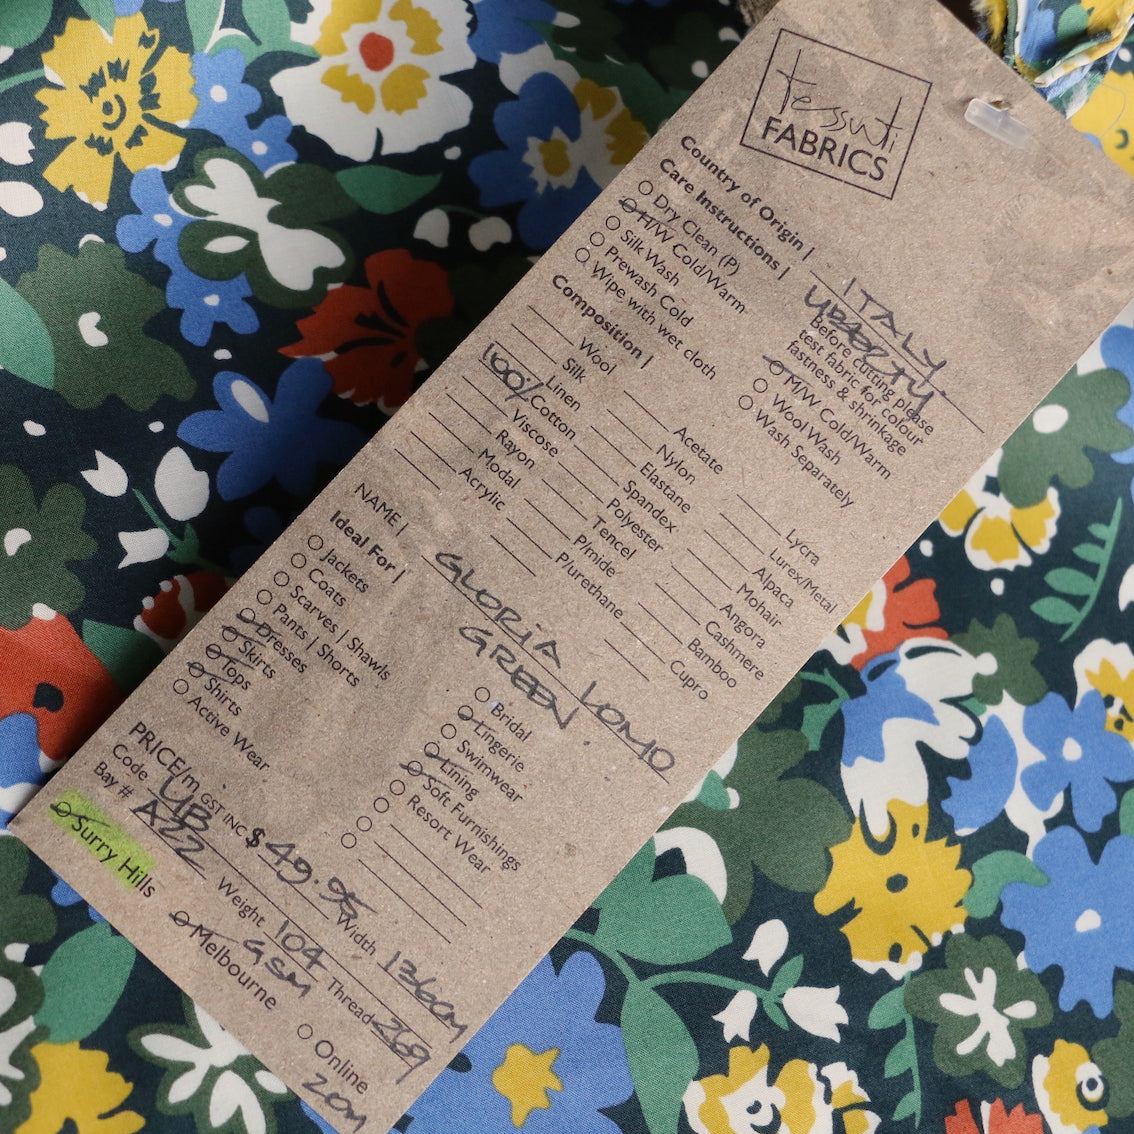 tessuti
FABRICS
Country of Origin | ITALY
Care Instructions | LIBERTY
Dry Clean (P)
H/W Cold/Warm
Silk Wash
Prewash Cold
Wipe with wet cloth
Before cutting please
test fabric for colour
fastness & shrinkage
M/W Cold/Warm
Wool Wash
Wash Separately
Composition |
Wool
Silk
Linen
100% Cotton
Viscose
Rayon
Modal
Acrylic
Acetate
Nylon
Elastane
Spandex
Polyester
Tencel
P/mide
P/urethane
Lycra
Lurex/Metal
Alpaca
Mohair
Angora
Cashmere
Bamboo
Cupro
NAME | GLORIA LOMO
GREEN
Ideal For |
Jackets
Coats
Scarves | Shawls
Pants | Shorts
Dresses
Skirts
Tops
Shirts
Active Wear
Bridal
Lingerie
Swimwear
Lining
Soft Furnishings
Resort Wear
PRICE/m GST INC $ 49.95
Code LIB Width 136cm
Bay # A22 Weight 104 GSM Thread 269
Surry Hills
Melbourne
Online
20M